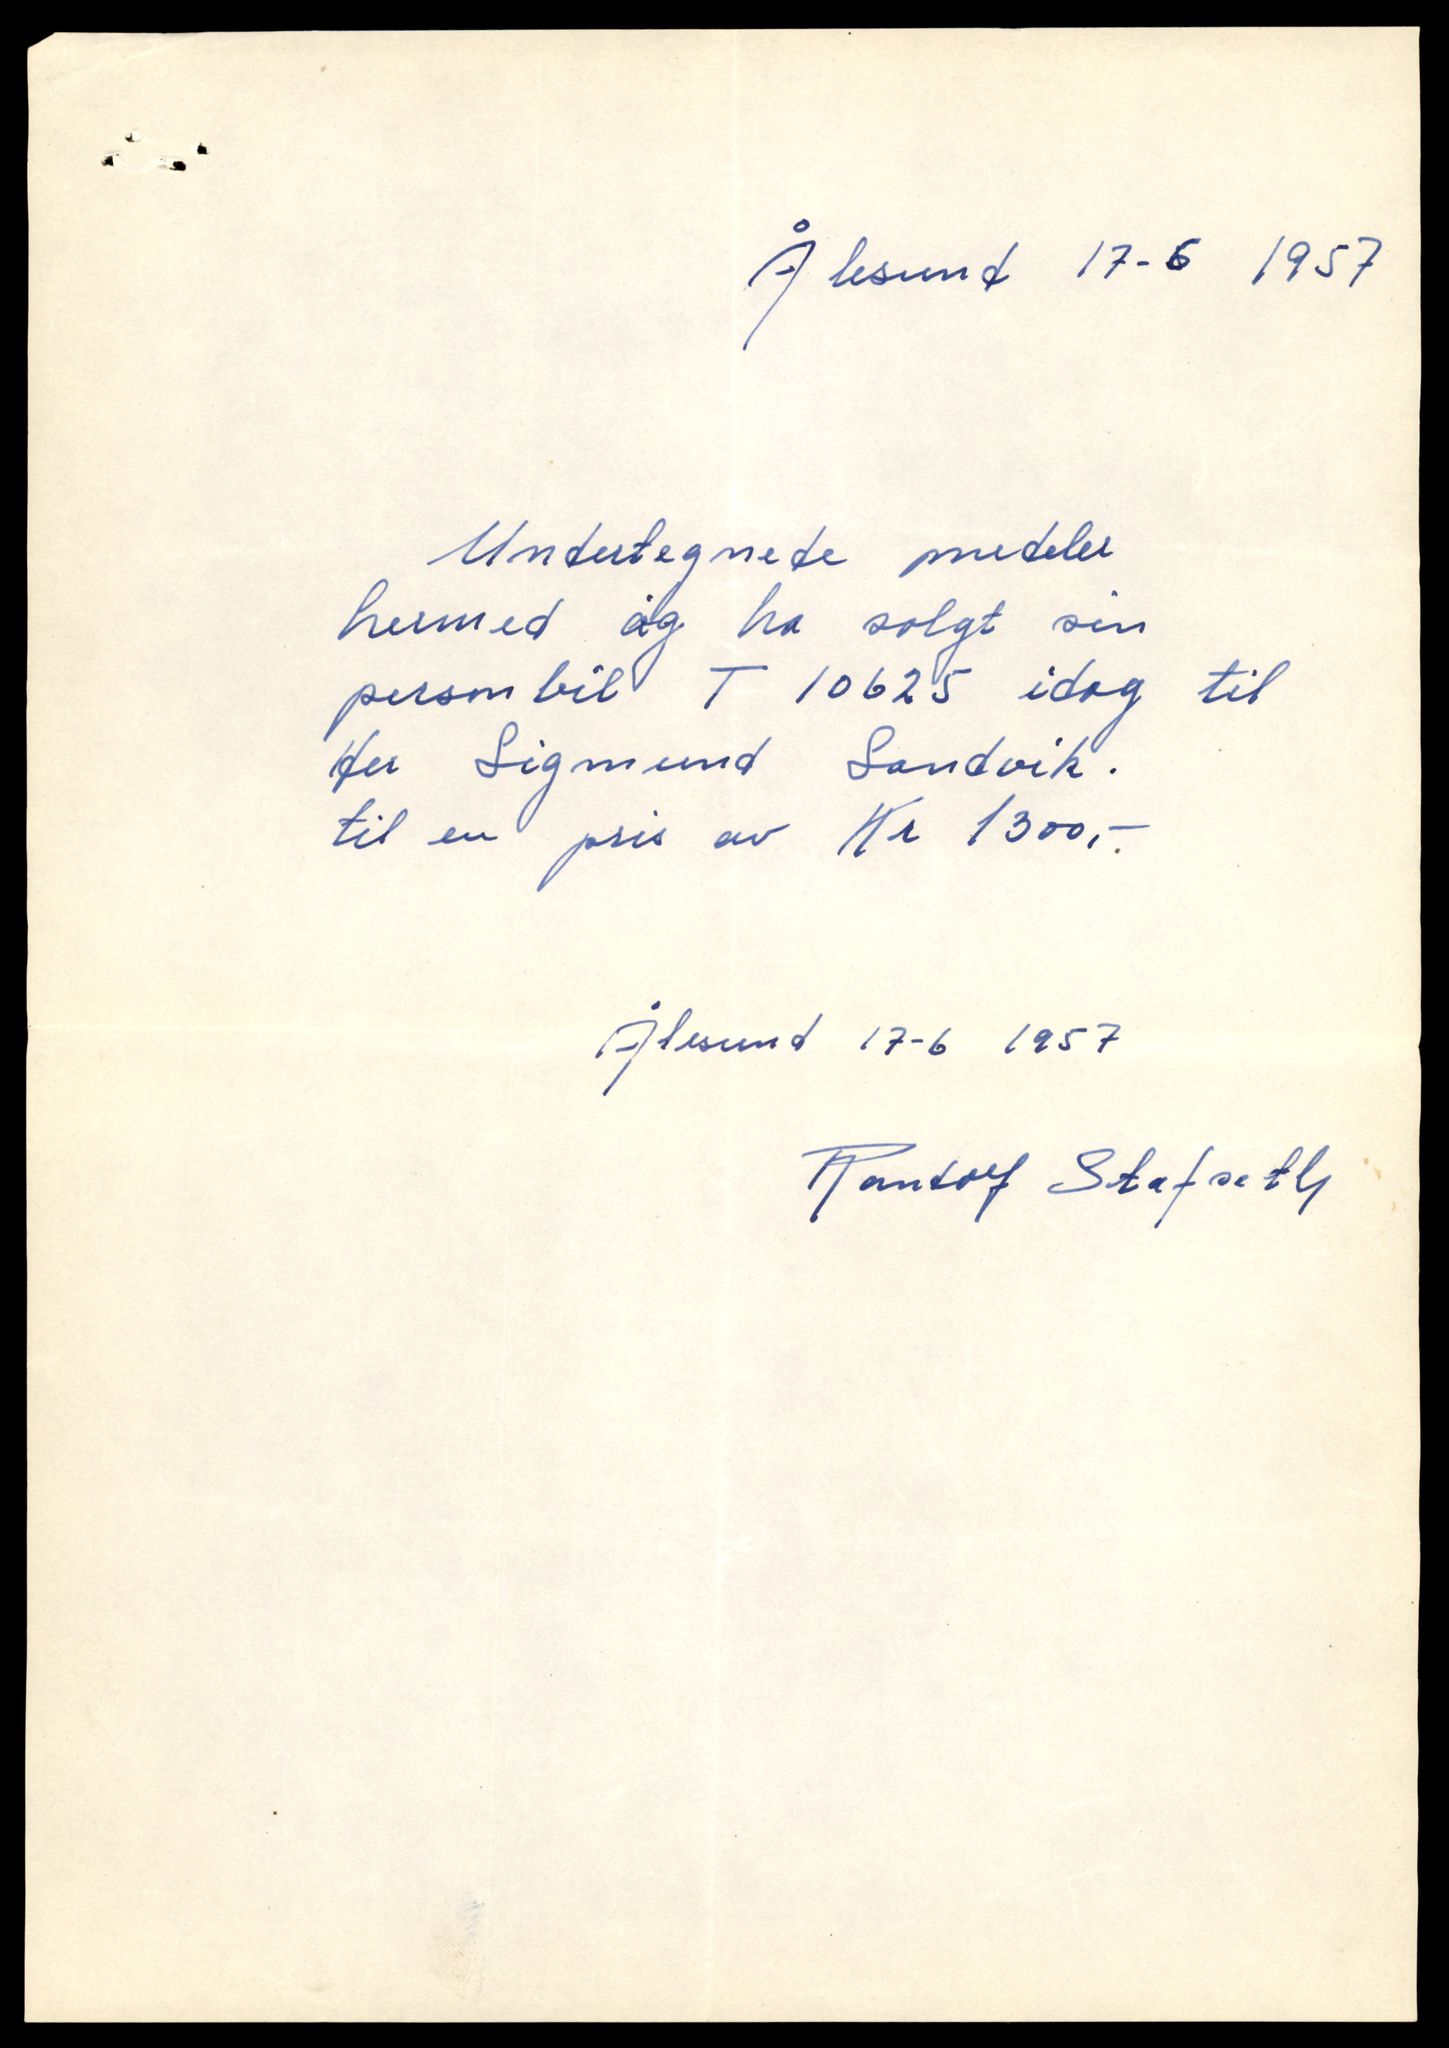 Ålesund 17-6 1957
Undertegnede medeler
hermed åg ha solgt sin
personbil T 10625 idag til
Her Sigmund Sandvik.
til en pris av Kr 1300,-
Ålesund 17-6 1957
Randolf Stafseth